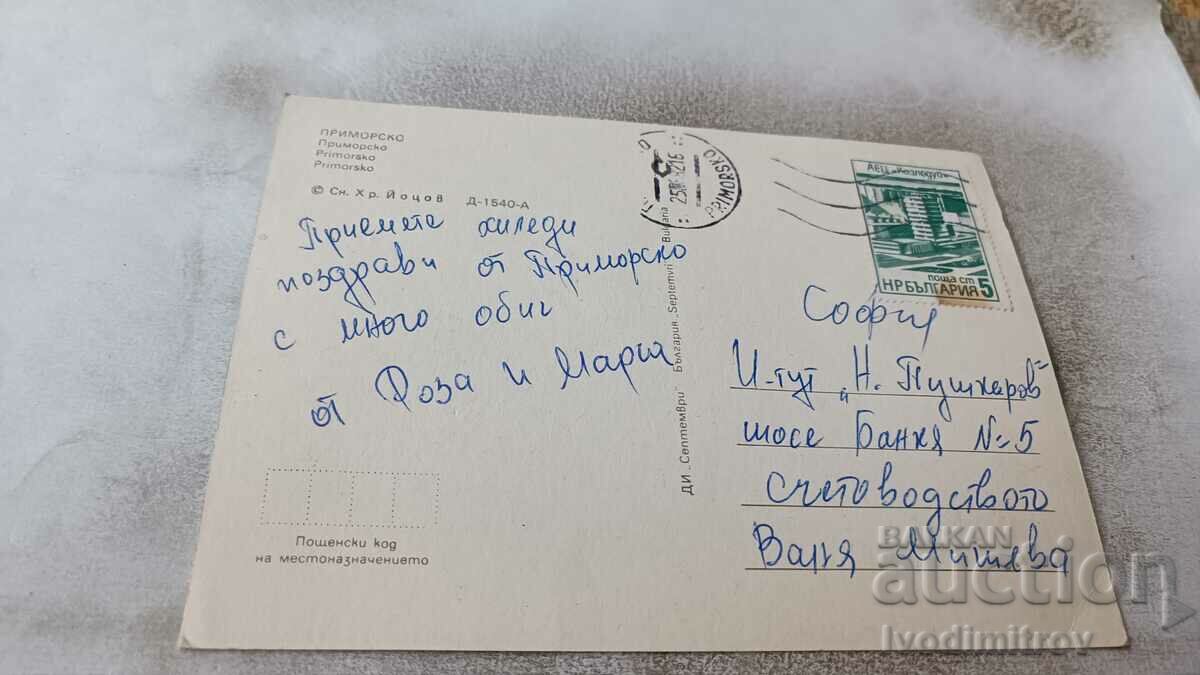 ПРИМОРСКО
Приморско
Primorsko
Primorsko
© Сн. Хр. Йоцов Д-1540-А
Приемете хиледи
поздрави от Приморско
с много обич
от Роза и Мария
Пощенски код
на местоназначението
ДИ „Септември" България „Septemvri" Bulgaria
PRIMORSKO
АЕЦ „Козлодуй"
поща ст
НР БЪЛГАРИЯ 5
София
И-тут „Н. Пушкаров"
шосе Банкя № 5
счетоводството
Ваня Мишева
BALKAN
auction
Ivodimitrov